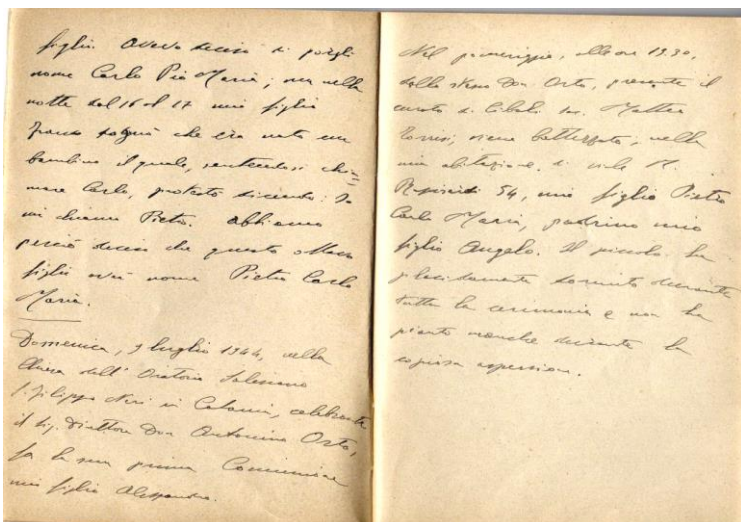 figlio. Avevo deciso di porgli
nome Carlo Pio Maria; ma nella
notte dal 16 al 17 mio figlio
Franco sognò che era nato un
bambino il quale, sentendosi chia=
mare Carlo, protestò dicendo: Io
mi chiamo Pietro. Abbiamo
perciò deciso che questo ottavo
figlio avrà nome Pietro Carlo
Maria.
Domenica, 9 luglio 1944, nella
Chiesa dell'Oratorio Salesiano
S. Filippo Neri in Catania, celebrante
il Sig. Direttore Don Antonino Orto,
fa la sua prima Comunione
mio figlio Alessandro.
Nel pomeriggio, alle ore 19.30,
dallo stesso Don Orto, presente il
curato di Cibali sac. Matteo
Torrisi, viene battezzato, nella
mia abitazione, di viale M.
Rapisardi 54, mio figlio Pietro
Carlo Maria, padrino mio
figlio Angelo. Il piccolo ha
placidamente dormito durante
tutta la cerimonia e non ha
pianto neanche durante la
copiosa aspersione.